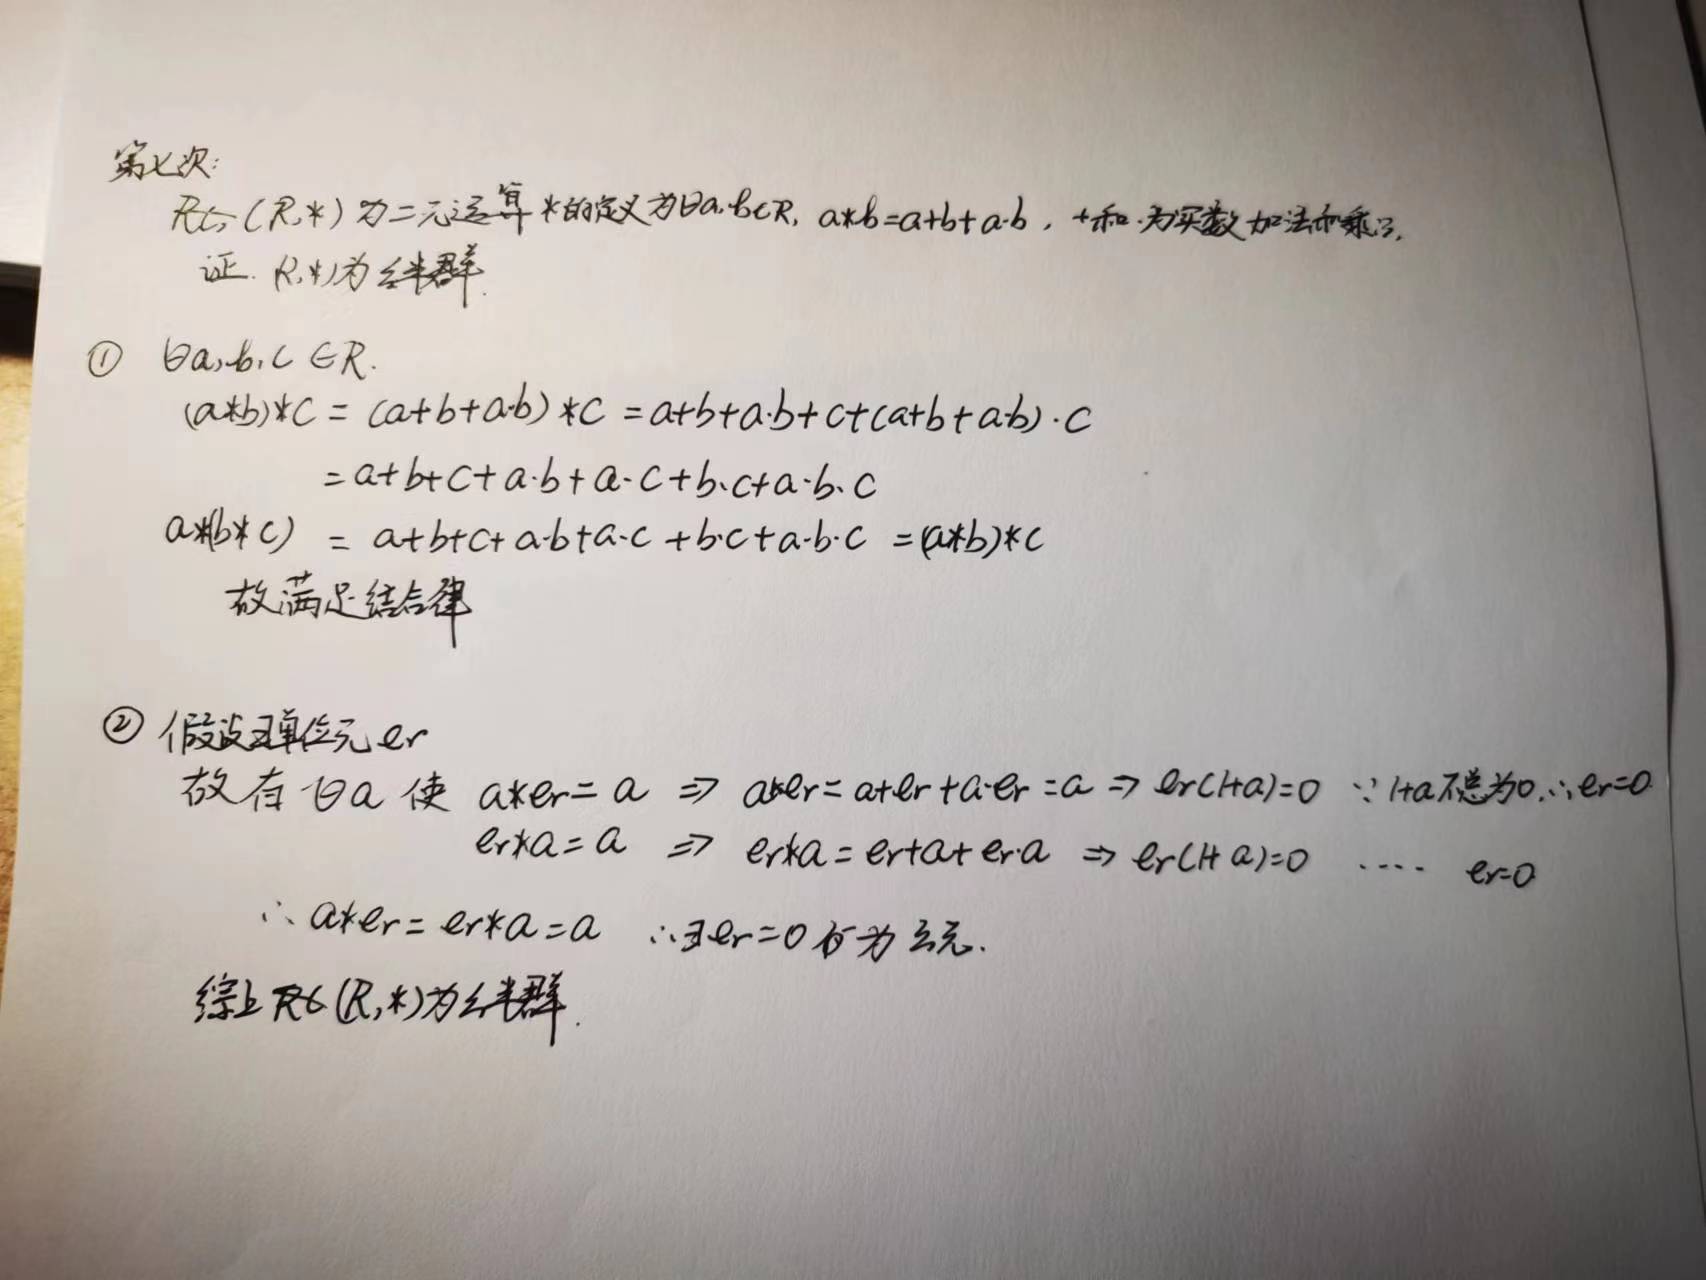 第七次:
代数(R,*)为二元运算*的定义为∀a,b∈R, a*b=a+b+a·b, +和·为实数加法和乘法.
证.(R,*)为幺半群.
① ∀a,b,c∈R.
(a*b)*c=(a+b+a·b)*c=a+b+a·b+c+(a+b+a·b)·c
=a+b+c+a·b+a·c+b·c+a·b·c
a*(b*c)=a+b+c+a·b+a·c+b·c+a·b·c=(a*b)*c
故满足结合律
② 假设∃单位元er
故有∀a使 a*er=a ⇒ a*er=a+er+a·er=a ⇒ er(1+a)=0 ∵1+a不总为0.∴er=0
er*a=a ⇒ er*a=er+a+er·a ⇒ er(1+a)=0 ···· er=0
∴a*er=er*a=a ∴∃er=0 为幺元.
综上 (R,*)为幺半群.